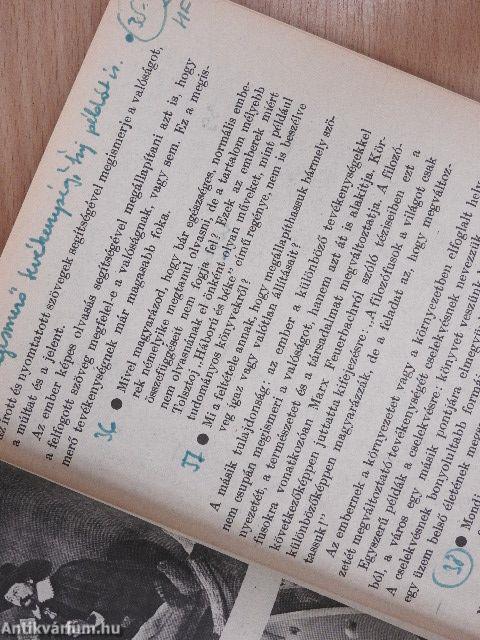 35.
megismerő tevékenység! írj példát is.
írott és nyomtatott szövegek segítségével megismerje a valóságot,
a múltat és a jelent.
Az ember képes olvasás segítségével megállapítani azt is, hogy
a felfogott szöveg megfelel-e a valóságnak, vagy sem. Ez a megis-
merő tevékenységnek már magasabb foka.
36 ● Mivel magyarázod, hogy bár egészséges, normális embe-
rek némelyike megtanul olvasni, de a tartalom mélyebb
összefüggéseit nem fogja fel? Ezek az emberek miért
nem olvasnának el önként olyan műveket, mint például
Tolsztoj „Háború és béke” című regénye, nem is beszélve
tudományos könyvekről?
37 ● Mi a feltétele annak, hogy megállapíthassuk bármely szö-
veg igaz vagy valótlan állításait?
A másik tulajdonság: az ember a különböző tevékenységekkel
nem csupán megismeri a valóságot, hanem azt át is alakítja. Kör-
nyezetét, a természetet és a társadalmat megváltoztatja. A filozó-
fusokra vonatkozóan Marx Feuerbachról szóló téziseiben ezt a
következőképpen juttatta kifejezésre: „A filozófusok a világot csak
különbözőképpen magyarázzák, de a feladat az, hogy megváltoz-
tassuk!”
Az embernek a környezetet vagy a környezetben elfoglalt hely
zetét megváltoztató tevékenységét cselekvésnek nevezzük
Egyszerű példák a cselekvésre: könyvet veszünk
ból, a város egy másik pontjára elmegyü
A cselekvésnek bonyolultabb formá
egy üzem belső életének megs
38 ● Mondj
Antikvárium.hu